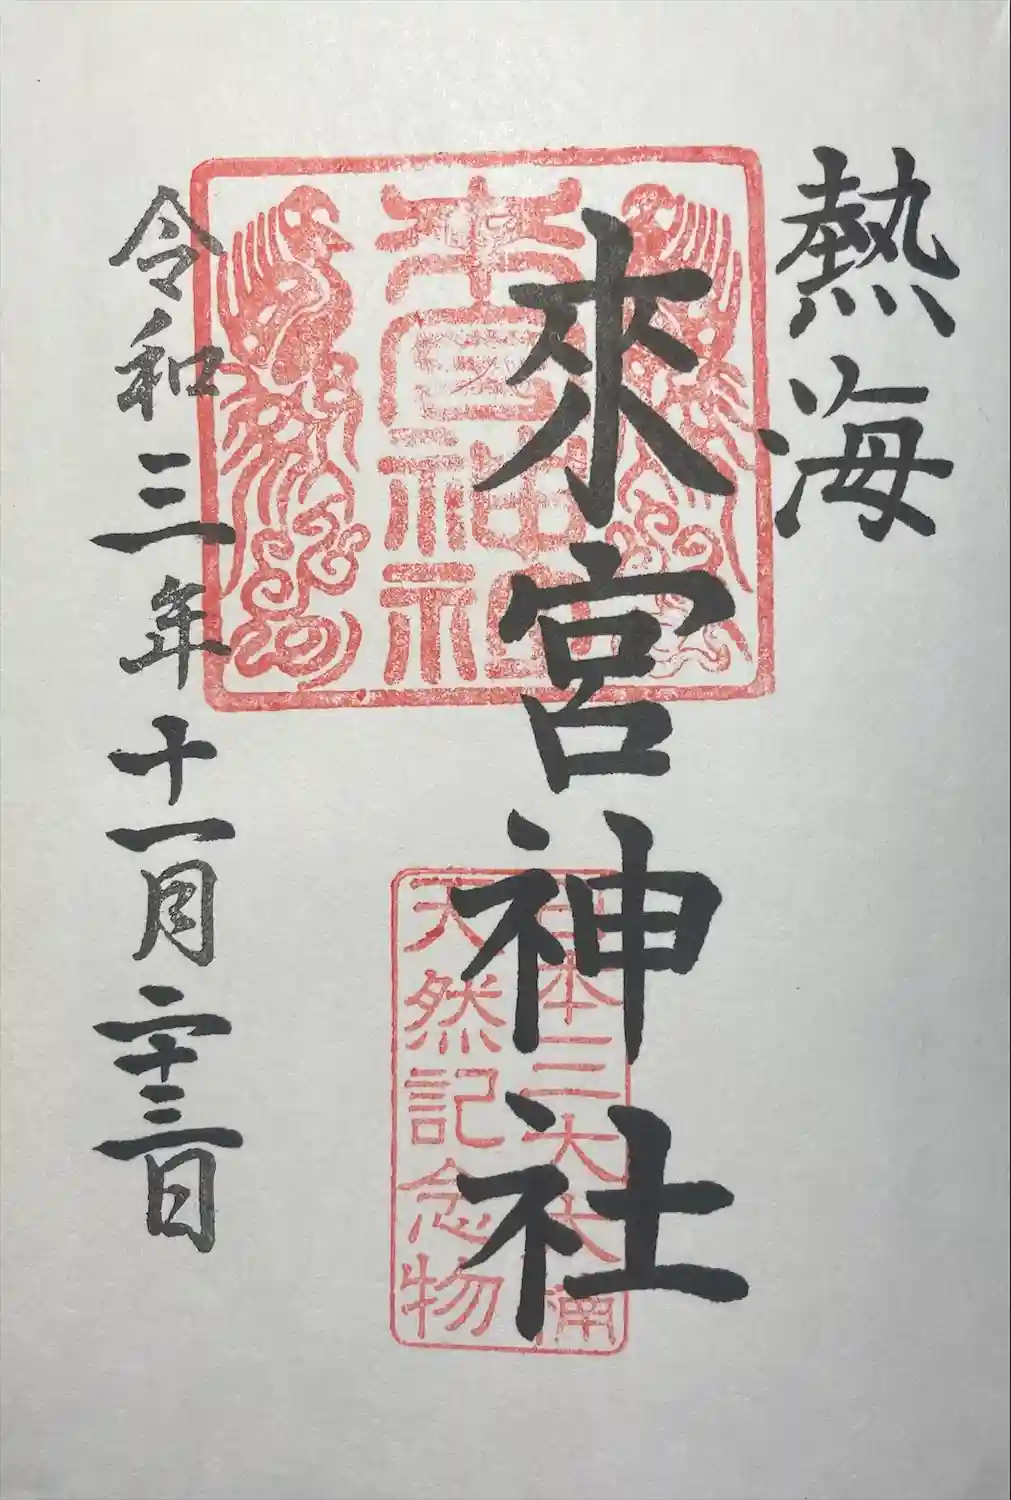 熱海
來宮神社
來宮神社
日本三大大楠
天然記念物
令和三年十一月二十三日